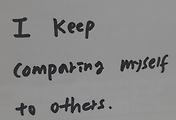 I Keep
comparing myself
to others.